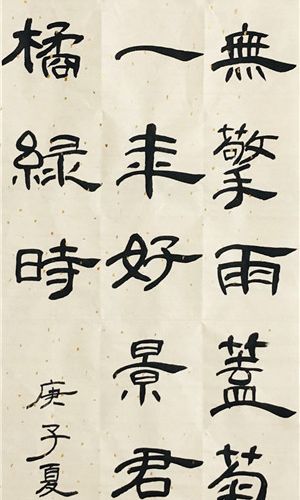 無擎雨蓋菊
一年好景君
橘緑時
庚子夏